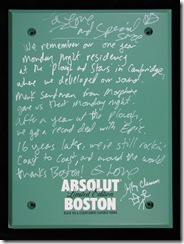 G. Love
and Special
Sauce
We remember our one year
Monday night residency
at the Plough and Stars in Cambridge,
where we developed our sound.
Mark Sandman from Morphine
gave us that Monday night.
After a year at the Plough,
we got a record deal with Epic.
16 years later, we're still rockin'
Coast to Coast, and around the world
thanks Boston! G. Love
Jeffrey Clemens
ABSOLUT
Limited Edition
BOSTON
BLACK TEA & ELDERFLOWER FLAVORED VODKA